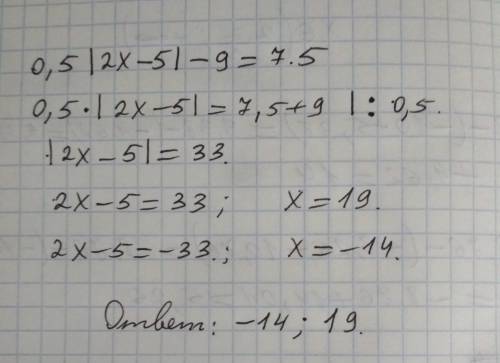 0,5 |2x-5| - 9 = 7.5
0,5·|2x-5| = 7,5+9 |: 0,5.
|2x-5| = 33.
2x-5 = 33; x = 19.
2x-5 = -33.; x = -14.
Ответ: -14; 19.